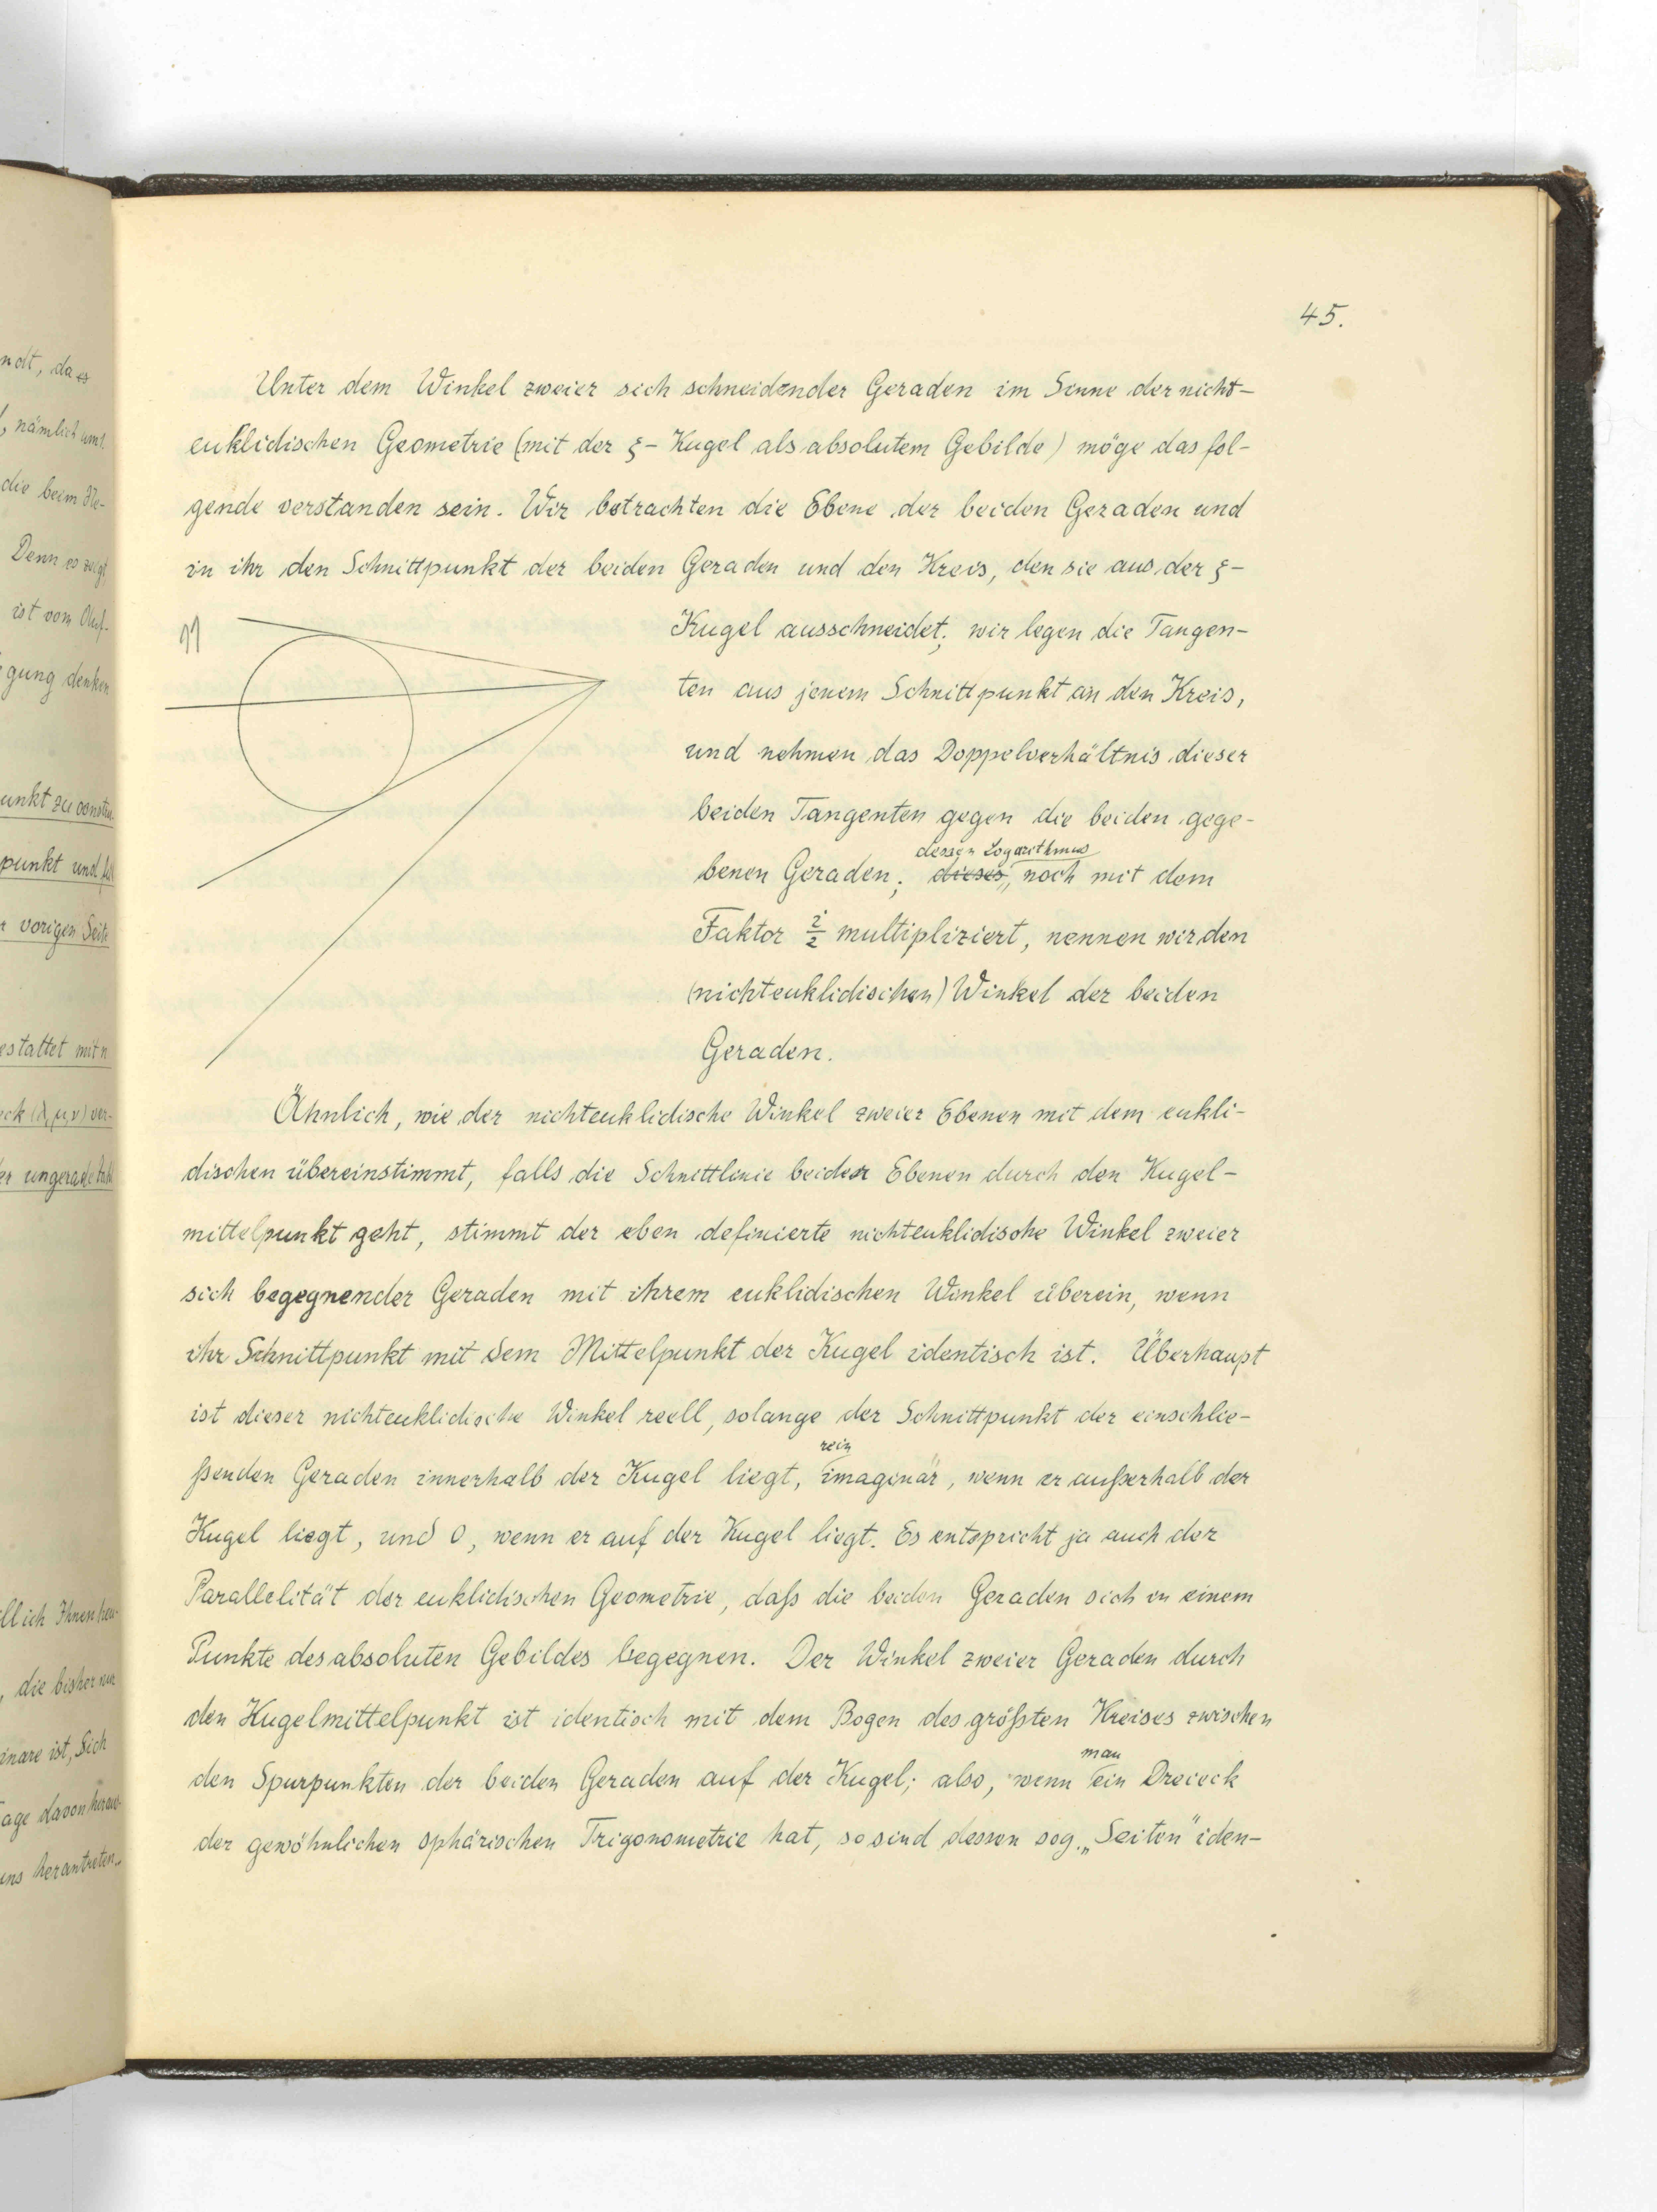 ndt, da es
, nämlich um
die beim
Denn es zeigt
ist vom
gung denken
punkt und
vorigen Seite
estattet mit n
(λ, μ, ν) ver-
er ungerade
ll ich Ihnen
, die bisher nur
inare ist, Sich
age davon
uns herantreten.
45.
Unter dem Winkel zweier sich schneidender Geraden im Sinne der nicht-
euklidischen Geometrie (mit der ξ-Kugel als absolutem Gebilde) möge das fol-
gende verstanden sein. Wir betrachten die Ebene der beiden Geraden und
in ihr den Schnittpunkt der beiden Geraden und den Kreis, den sie aus der ξ-
Kugel ausschneidet; wir legen die Tangen-
ten aus jenem Schnittpunkt an den Kreis,
und nehmen das Doppelverhältnis dieser
beiden Tangenten gegen die beiden gege-
dessen Logarithmus
benen Geraden; dieses, noch mit dem
Faktor i/2 multipliziert, nennen wir den
(nichteuklidischen) Winkel der beiden
Geraden.
Ähnlich, wie der nichteuklidische Winkel zweier Ebenen mit dem eukli-
dischen übereinstimmt, falls die Schnittlinie beider Ebenen durch den Kugel-
mittelpunkt geht, stimmt der eben definierte nichteuklidische Winkel zweier
sich begegnender Geraden mit ihrem euklidischen Winkel überein, wenn
ihr Schnittpunkt mit dem Mittelpunkt der Kugel identisch ist. Überhaupt
ist dieser nichteuklidische Winkel reell, solange der Schnittpunkt der einschlie-
rein
ßenden Geraden innerhalb der Kugel liegt, imaginär, wenn er außerhalb der
Kugel liegt, und 0, wenn er auf der Kugel liegt. Es entspricht ja auch der
Parallelität der euklidischen Geometrie, daß die beiden Geraden sich in einem
Punkte des absoluten Gebildes begegnen. Der Winkel zweier Geraden durch
den Kugelmittelpunkt ist identisch mit dem Bogen des größten Kreises zwischen
man
den Spurpunkten der beiden Geraden auf der Kugel; also, wenn ein Dreieck
der gewöhnlichen sphärischen Trigonometrie hat, so sind dessen sog. „Seiten" iden-